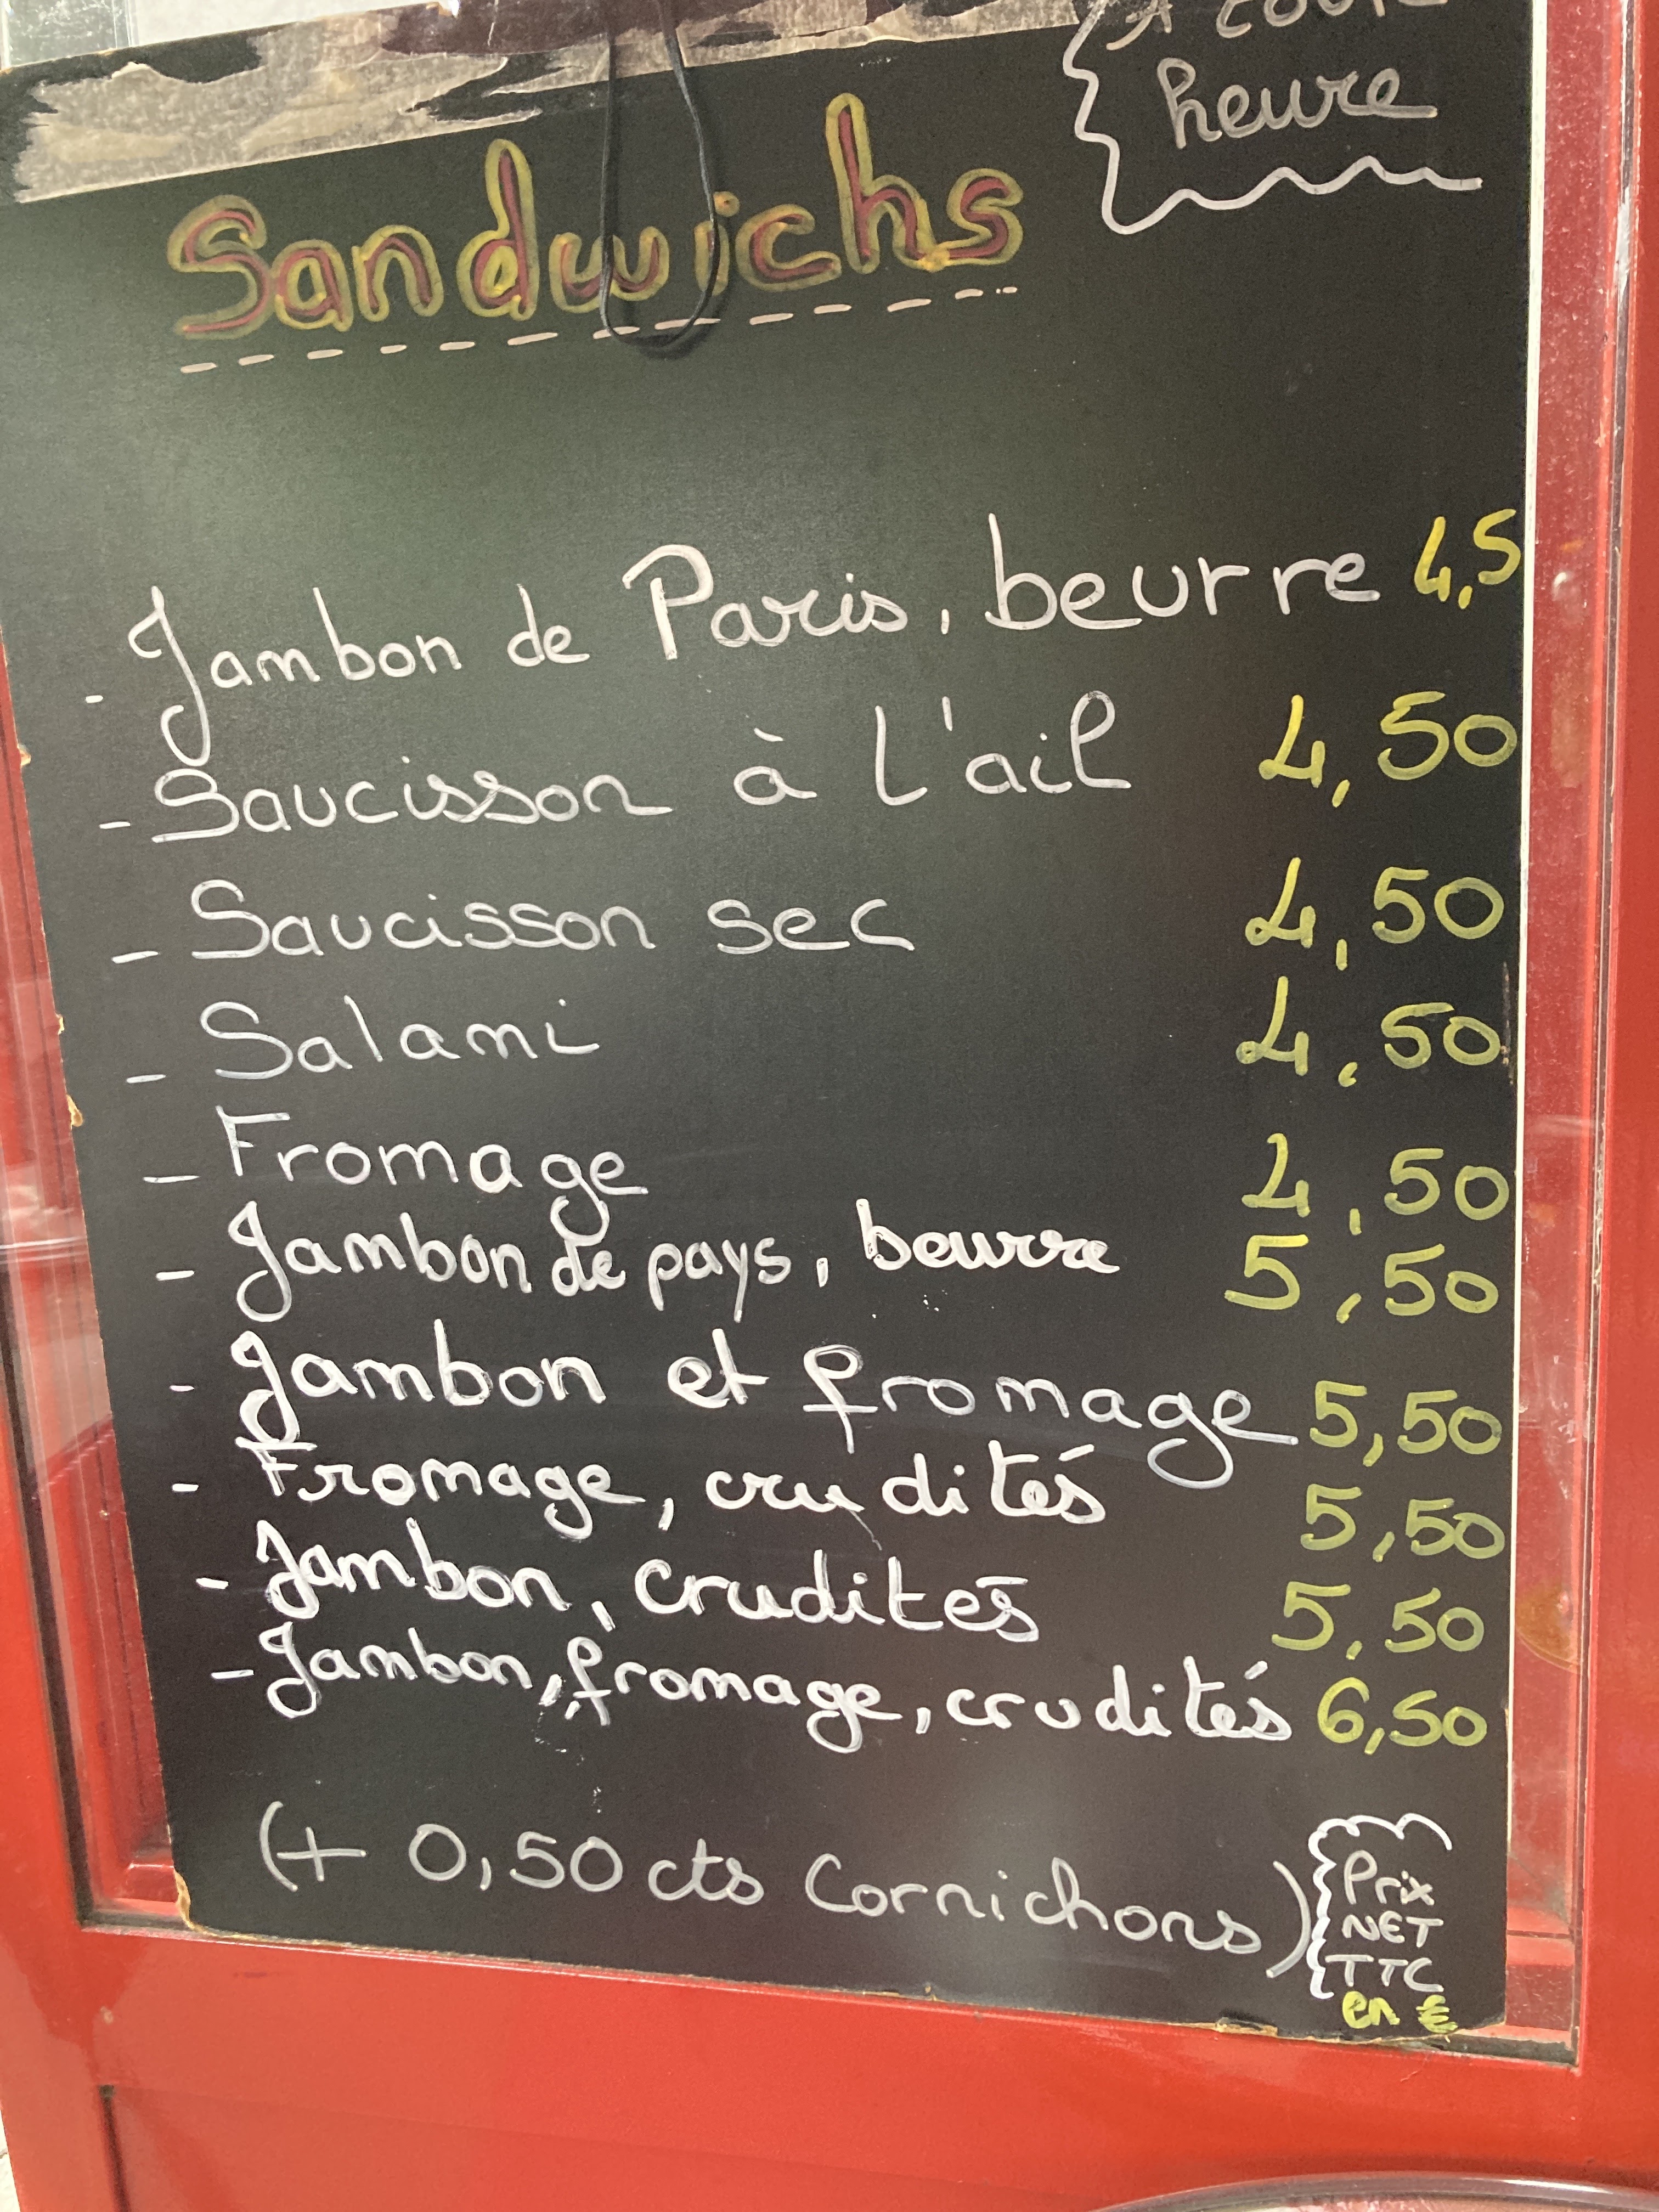 A toute
heure
Sandwichs
- Jambon de Paris, beurre 4,5
- Saucisson à l'ail 4,50
- Saucisson sec 4,50
- Salami 4,50
- Fromage 4,50
- Jambon de pays, beurre 5,50
- Jambon et fromage 5,50
- Fromage, crudités 5,50
- Jambon, crudités 5,50
- Jambon, fromage, crudités 6,50
(+ 0,50 cts Cornichons)
Prix
NET
TTC
en €